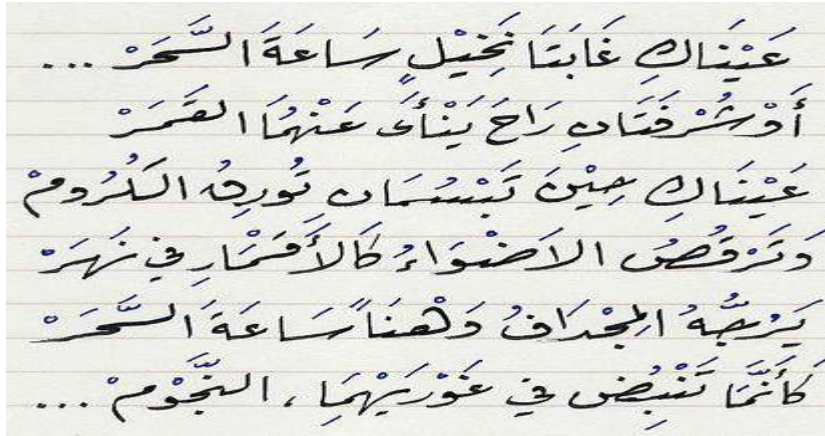 عَيْنَاكِ غَابَتَا نَخِيْلٍ سَاعَةَ السَّحَرْ ...
أَوْ شُرْفَتَانِ رَاحَ يَنْأَى عَنْهُمَا القَمَرْ
عَيْنَاكِ حِيْنَ تَبْسُمَانِ تُورِقُ الكُرُومْ
وَتَرْقُصُ الاَضْوَاءُ كَالأَقْمَارِ في نَهَرْ
يَرُجُّهُ المِجْدَافُ وَهْنَاً سَاعَةَ السَّحَرْ
كَأَنَّمَا تَنْبُِضُ في غَوْرَيْهِمَا ، النُّجُوْمْ ...